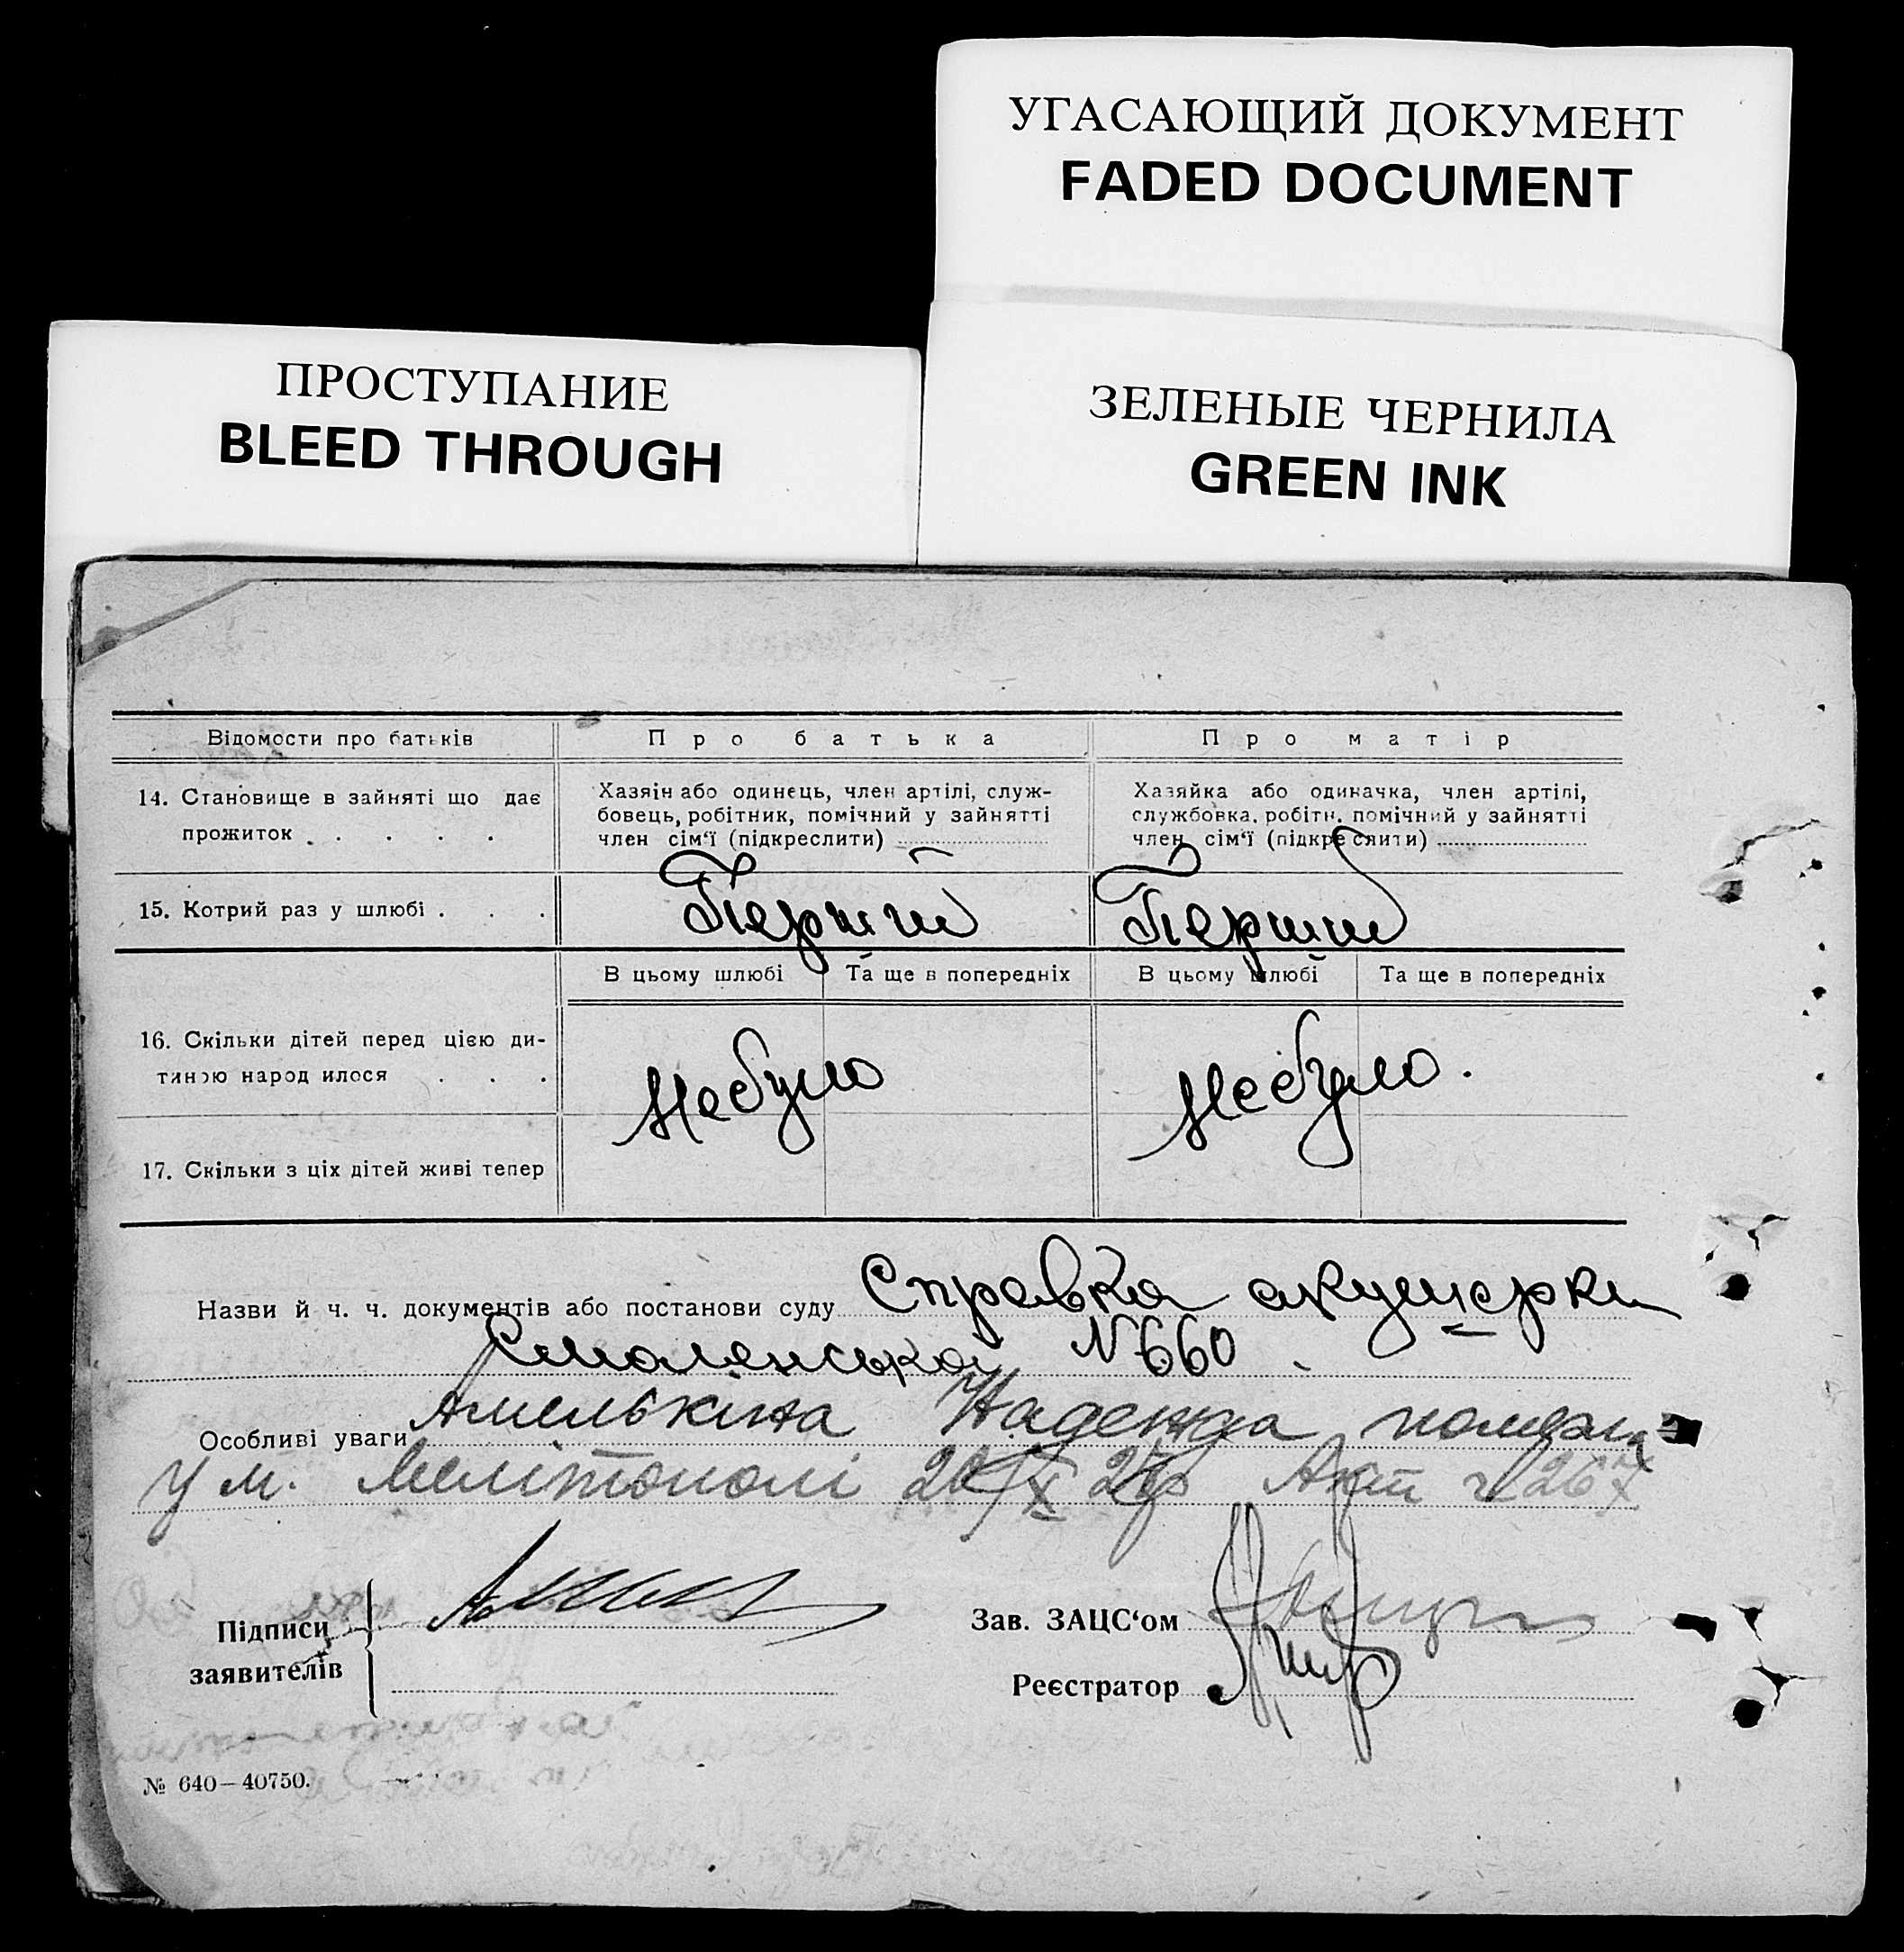 УГАСАЮЩИЙ ДОКУМЕНТ
FADED DOCUMENT
ПРОСТУПАНИЕ
BLEED THROUGH
ЗЕЛЕНЫЕ ЧЕРНИЛА
GREEN INK
Відомости про батьків Про батька Про матір
14. Становище в зайняті що дає
прожиток . . . . .
Хазяїн або одинець, член артілі, служ-
бовець, робітник, помічний у зайнятті
член сім'ї (підкреслити)
Хазяйка або одиначка, член артілі,
службовка, робітн. помічний у зайнятті
член сім'ї (підкреслити)
15. Котрий раз у шлюбі . . . Перший Перший
В цьому шлюбі Та ще в попередніх В цьому шлюбі Та ще в попередніх
16. Скільки дітей перед цією ди-
тиною народилося . . . Небуло Небуло.
17. Скільки з ціх дітей живі тепер
Назви й ч. ч. документів або постанови суду Справка акушерки
Смоленської N 660.
Особливі уваги Амелькіна Надежда померла
у м. Мелітополі Акт ч 267
Підписи
заявителів
Зав. ЗАЦС'ом
Реєстратор
№ 640—40750.